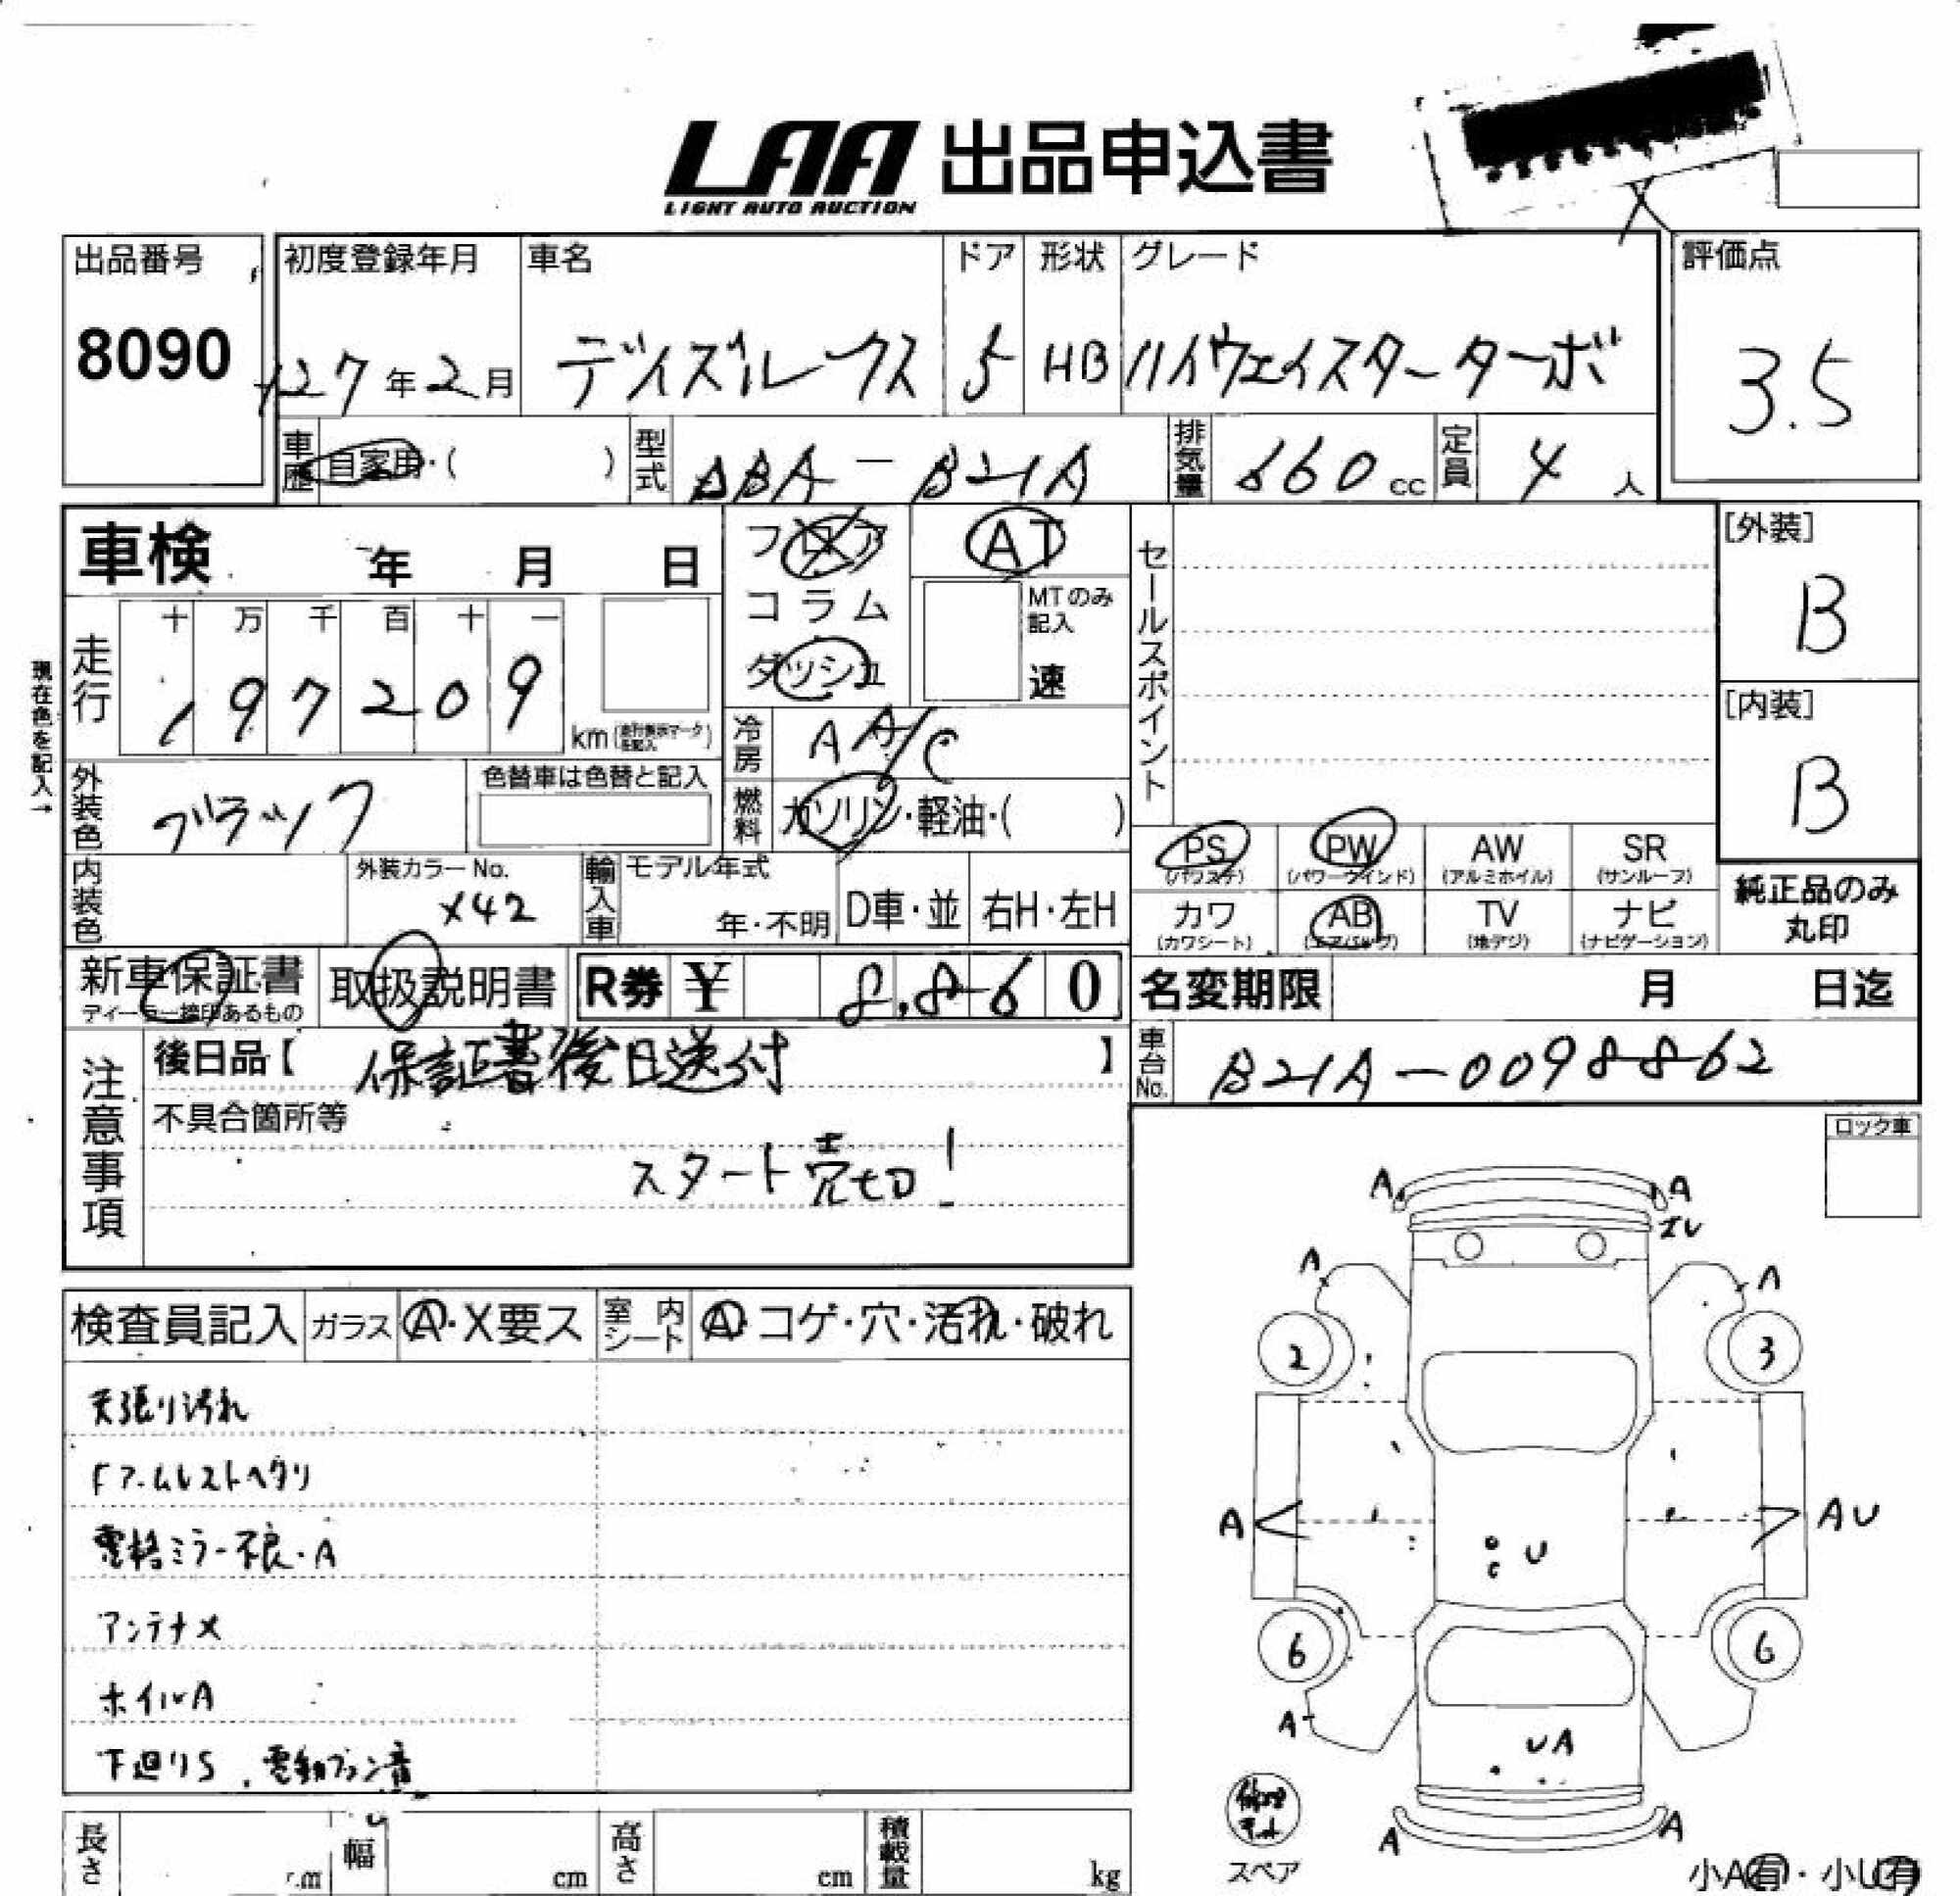 LAA 出品申込書
LIGHT AUTO AUCTION
出品番号
8090
初度登録年月
H27年2月
車名
デイズルークス
ドア
5
形状
HB
グレード
ハイウェイスターターボ
評価点
3.5
車歴
自家用・( )
型式
DBA-B21A
排気量
660cc
定員
4人
車検 年 月 日
フロア
コラム
ダッシュ
AT
MTのみ記入
速
セールスポイント
[外装]
B
[内装]
B
現在色を記入→
走行
十 万 千 百 十 一
1 9 7 2 0 9
km
冷房
AA/C
外装色
ブラック
色替車は色替と記入
燃料
ガソリン・軽油・( )
PS
(パワステ)
PW
(パワーウインド)
AW
(アルミホイル)
SR
(サンルーフ)
カワ
(カワシート)
AB
(エアバッグ)
TV
(地デジ)
ナビ
(ナビゲーション)
純正品のみ
丸印
内装色
外装カラーNo.
X42
輸入車
モデル年式
年・不明
D車・並
右H・左H
新車保証書
ディーラー捺印あるもの
取扱説明書
R券 ¥ 8,860
名変期限 月 日迄
注意事項
後日品【 保証書後日送付 】
車台No.
B21A-0098862
不具合箇所等
スタート売切!
ロック車
検査員記入
ガラス
A・X要ス
室内シート
A・コゲ・穴・汚れ・破れ
天張り汚れ
Fアームレストヘタリ
電格ミラー不良・A
アンテナX
ホイルA
下廻りS、電動ファン音
A
A
A
A
2
3
A
AU
U
6
6
A
UA
修理キット
スペア
A
A
小A有・小U有
長さ
幅
cm
高さ
cm
積載量
kg